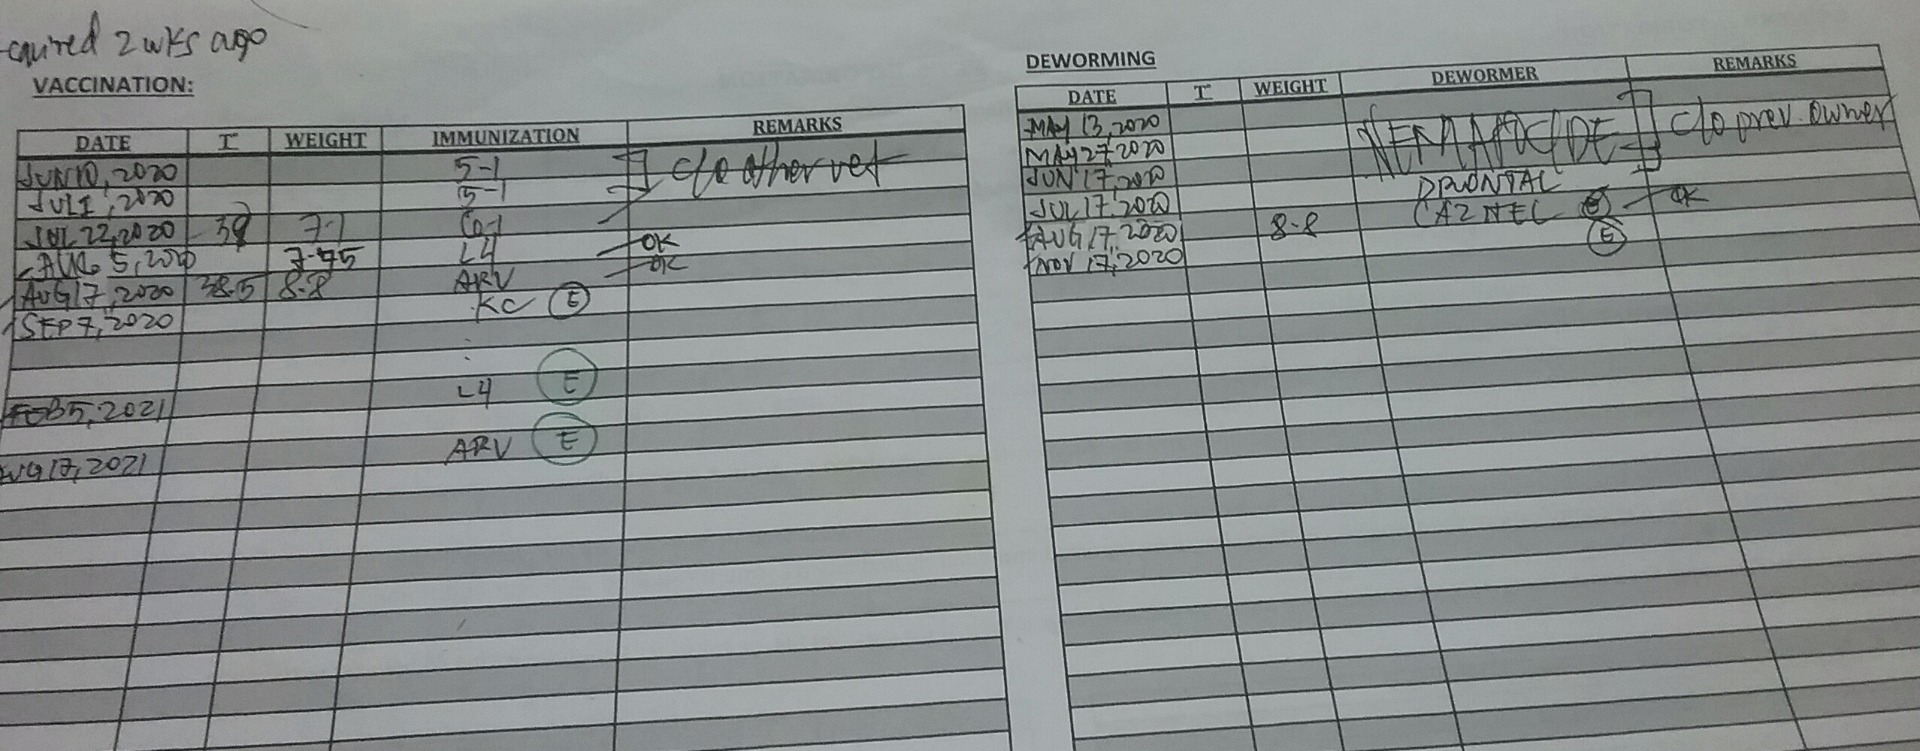 2 wks ago
VACCINATION:
DATE T WEIGHT IMMUNIZATION REMARKS
JUN 10, 2020 5-1 c/o other vet
JUL 1, 2020 5-1
JUL 22, 2020 7.1
AUG 5, 2020 L4 OK
AUG 17, 2020 38.5 8.8 ARV OK
SEP 7, 2020 KC E
FEB 5, 2021 L4 E
17, 2021 ARV E
DEWORMING
DATE T WEIGHT DEWORMER REMARKS
MAY 13, 2020 c/o prev. owner
MAY 27, 2020
JUN 17, 2020
JUL 17, 2020 DRONTAL
AUG 17, 2020 8.8 E OK
NOV 17, 2020 E